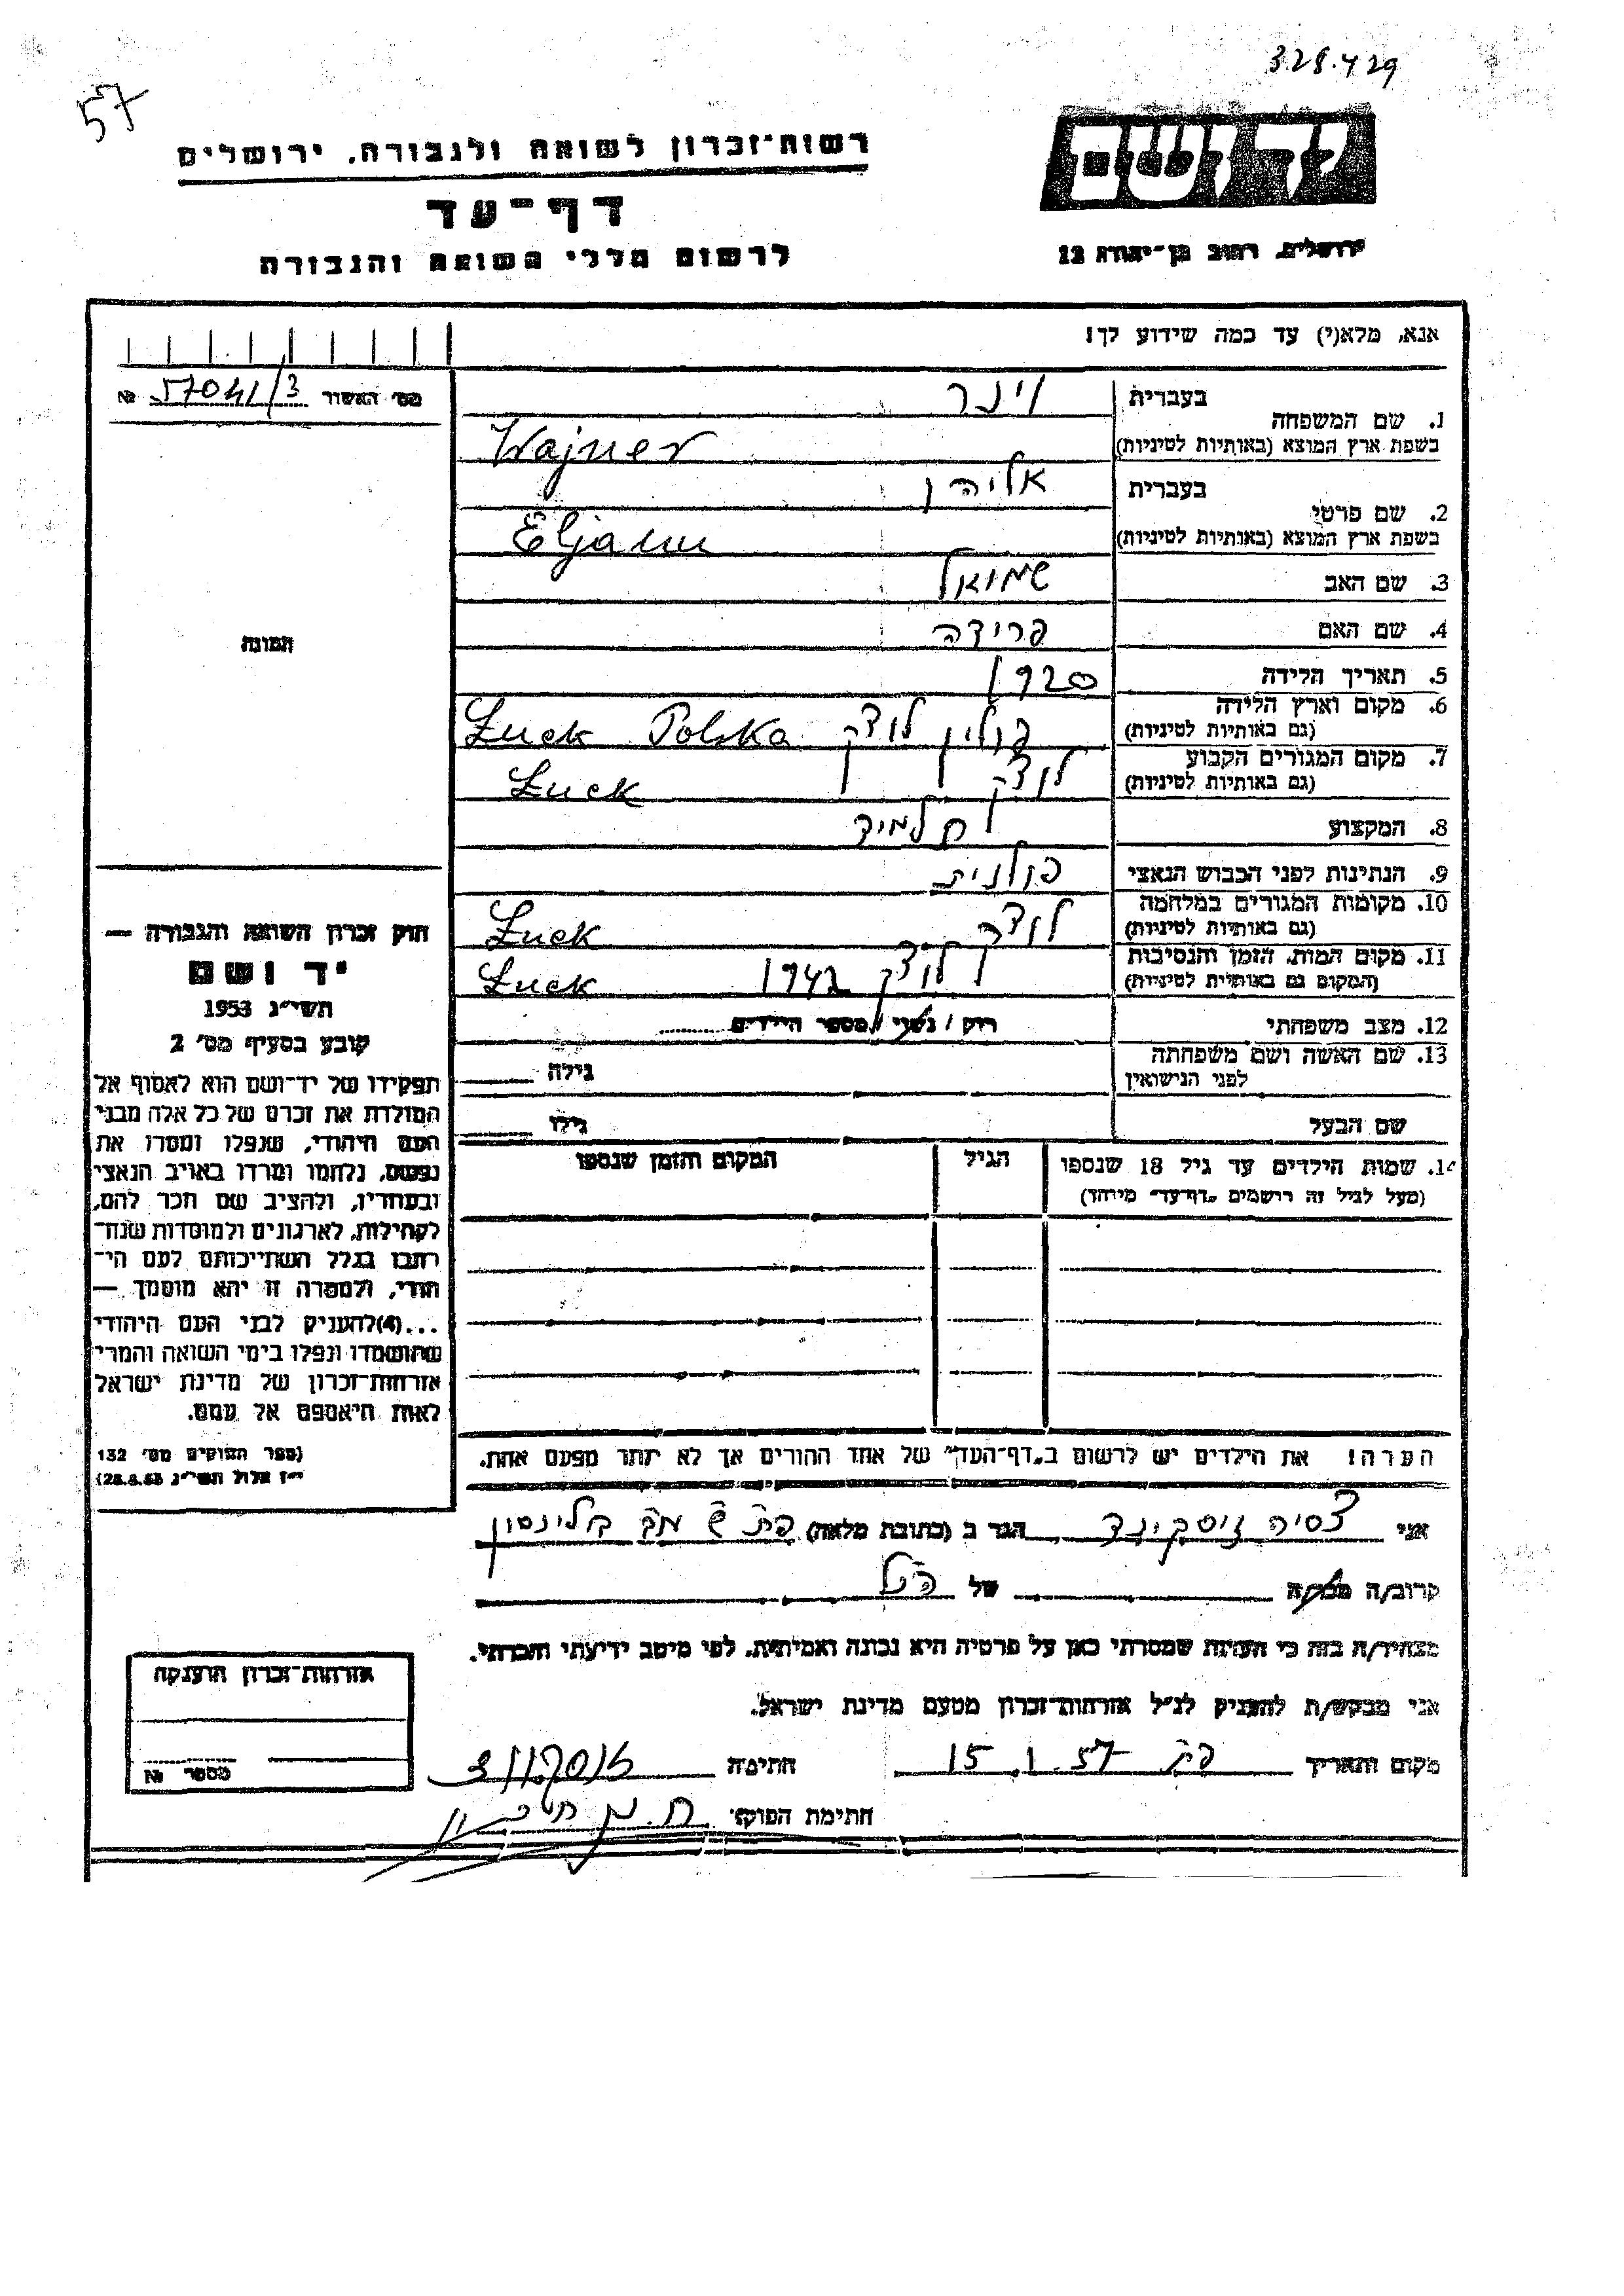 328.429
57
יד ושם
רשות־זכרון לשואה ולגבורה, ירושלים
דף־עד
לרשום חללי השואה והגבורה
ירושלים, רחוב בן־יהודה 12
אנא, מלא(י) עד כמה שידוע לך!
מס' האשור 57041/3 №
1. שם המשפחה בעברית וינר
בשפת ארץ המוצא (באותיות לטיניות) Wajner
2. שם פרטי בעברית אליהו
בשפת ארץ המוצא (באותיות לטיניות) Eljauu
3. שם האב שמואל
4. שם האם פרידה
5. תאריך הלידה 1920
6. מקום וארץ הלידה
(גם באותיות לטיניות) פולין לוצק Łuck Polska
7. מקום המגורים הקבוע
(גם באותיות לטיניות) לוצק Łuck
8. המקצוע תלמיד
9. הנתינות לפני הכבוש הנאצי פולנית
10. מקומות המגורים במלחמה
(גם באותיות לטיניות) לוצק Łuck
11. מקום המות, הזמן והנסיבות
(המקום גם באותיות לטיניות) לוצק 1942 Łuck
12. מצב משפחתי רוק / נשוי / מספר הילדים
13. שם האשה ושם משפחתה
לפני הנישואין גילה
שם הבעל גילו
14. שמות הילדים עד גיל 18 שנספו הגיל המקום והזמן שנספו
(מעל לגיל זה רושמים „דף־עד" מיוחד)
הערה! את הילדים יש לרשום ב„דף־העד" של אחד ההורים אך לא יותר מפעם אחת.
התמונה
חוק זכרון השואה והגבורה —
יד ושם
תשי״ג 1953
קובע בסעיף מס' 2
תפקידו של יד־ושם הוא לאסוף אל
המולדת את זכרם של כל אלה מבני
העם היהודי, שנפלו ומסרו את
נפשם, נלחמו ומרדו באויב הנאצי
ובעוזריו, ולהציב שם וזכר להם,
לקהילות, לארגונים ולמוסדות שנח־
רבו בגלל השתייכותם לעם הי־
הודי, ולמטרה זו יהא מוסמך —
...(4)להעניק לבני העם היהודי
שהושמדו ונפלו בימי השואה והמרי
אזרחות־זכרון של מדינת ישראל
לאות היאספם אל עמם.
(ספר החוקים מס' 132
י״ז אלול תשי״ג 28.8.53)
אני צסיה זיסקינד הגר ב (כתובת מלאה) פת בלינסון
קרוב/ה מכר/ה של
מצהיר/ה בזה כי העדות שמסרתי כאן על פרטיה היא נכונה ואמיתית, לפי מיטב ידיעתי והכרתי.
אני מבקש/ת להעניק לנ״ל אזרחות־זכרון מטעם מדינת ישראל.
מקום ותאריך פת 15.1.57 חתימה
חתימת הפוקד
אזרחות־זכרון הוענקה
מספר №